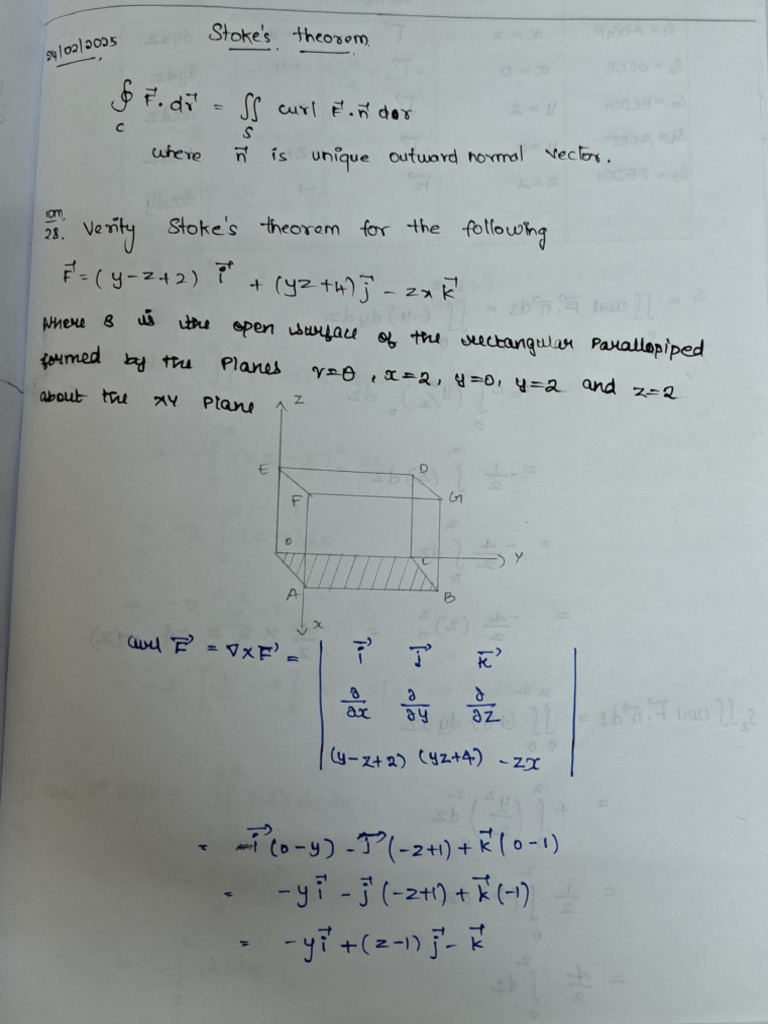 24/02/2025
Stoke's theorem
∮ F⃗. dr⃗ = ∬ curl F⃗. n⃗ dσr
C S
where n⃗ is unique outward normal vector.
10m.
28. Verity Stoke's theorem for the following
F⃗ = (y-z+2) i⃗ + (yz+4) j⃗ - zx k⃗
where S is the open surface of the rectangular Parallopiped
formed by the Planes v=0, x=2, y=0, y=2 and z=2
about the XY Plane
Z
E D
F G
O C Y
A B
X
curl F⃗ = ∇ x F⃗ = | i⃗ j⃗ k⃗ |
∂/∂x ∂/∂y ∂/∂z
(y-z+2) (yz+4) -zx
= i⃗ (0-y) - j⃗ (-z+1) + k⃗ (0-1)
= -y i⃗ - j⃗ (-z+1) + k⃗ (-1)
= -y i⃗ + (z-1) j⃗ - k⃗